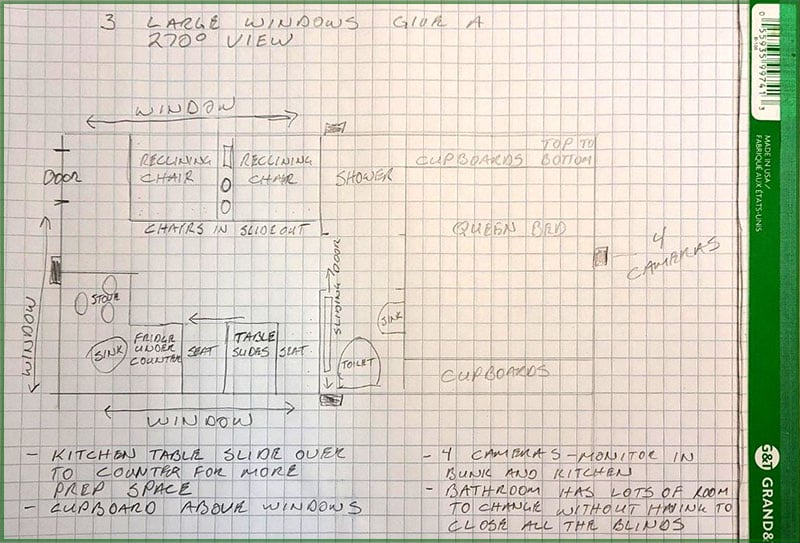 3 LARGE WINDOWS GIVE A
270° VIEW
WINDOW
DOOR
RECLINING
CHAIR
RECLINING
CHAIR
CHAIRS IN SLIDEOUT
SHOWER
CUPBOARDS
TOP TO
BOTTOM
QUEEN BED
4
CAMERAS
SLIDING DOOR
WINDOW
STOVE
SINK
FRIDGE
UNDER
COUNTER
SEAT
TABLE
SLIDES
SEAT
TOILET
SINK
CUPBOARDS
WINDOW
- KITCHEN TABLE SLIDE OVER
TO COUNTER FOR MORE
PREP SPACE
- CUPBOARD ABOVE WINDOWS
- 4 CAMERAS - MONITOR IN
BUNK AND KITCHEN
- BATHROOM HAS LOTS OF ROOM
TO CHANGE WITHOUT HAVING TO
CLOSE ALL THE BLINDS
MADE IN USA /
FABRIQUÉ AUX ÉTATS-UNIS
G&T GRAND&